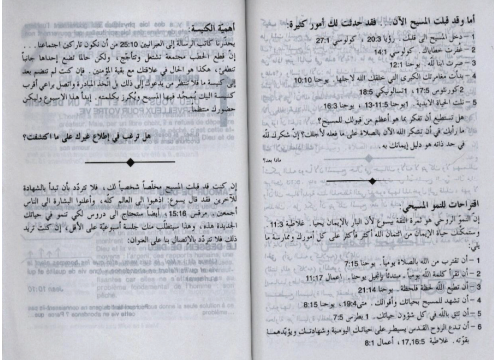 أما وقد قبلت المسيح الآن ... فقد حدثت لك أمور كثيرة:
1 - دخل المسيح الى قلبك. رؤيا 3:20 ، كولوسي 27:1
2 - غفرت خطاياك. كولوسي 14:1
3 - صرت ابنا لله. يوحنا 12:1
4 - بدأت مغامرتك الكبرى التي خلقك الله لاجلها. يوحنا 10:10
2 كورنثوس 17:5 ، 1 تسالونيكي 8:5
5 - نلت الحياة الابدية. 1 يوحنا 11:5-13 ، يوحنا 16:3
هل تستطيع أن تفكر بما هو أعظم من قبولك للمسيح؟
ما رأيك في أن تشكر الله الآن بالصلاة على ما فعله لأجلك؟ إنّ شكرك لله
في حد ذاته هو دليل إيمانك به.
ماذا بعد؟
اقتراحات للنمو المسيحي:
إنّ النموّ الروحي هو ثمرة الثقة بيسوع لأن البار بالإيمان يحيا. غلاطية 11:3
وستمكّنك حياة الإيمان من ائتمان الله أكثر فأكثر على كل أمورك وممارسة ما
يأتي:
1 - أن تقترب من الله بالصلاة يومياً. يوحنا 7:15
2 - أن تقرأ كلمة الله يومياً - مبتدئاً بإنجيل يوحنا. اعمال 11:17
3 - أن تطيع الله لحظة فلحظة. يوحنا 21:14
4 - أن تشهد للمسيح بحياتك وأقوالك. متى 19:4، يوحنا 8:15
5 - أن تثق بالله في كل شؤون حياتك. 1 بطرس 7:5
6 - أن تدع الروح القدس يسيطر على حياتك اليومية وشهادتك ويؤيّدهما
بقوّته. غلاطية 16,17:5، اعمال 8:1
أهمية الكنيسة:
يحذّرنا كاتب الرسالة إلى العبرانيين 25:10 من أن نكون تاركين اجتماعنا...
إنّ قطع الحطب مجتمعة تشتعل وتتأجّج، ولكن حالما تضع إحداها جانباً
تنطفئ، هكذا هو الحال في علاقتك مع بقية المؤمنين. فإن كنت لم تنضم بعد
إلى كنيسة ما فلا تنتظر من يدعوك إلى ذلك بل اتّخذ المبادرة واتصل براعي أقرب
كنيسة اليك يُمجَّد فيها المسيح ويُكرز بكلمته. إبدأ هذا الاسبوع وليكن
حضورك منتظماً.
هل ترغب في إطلاع غيرك على ما اكتشفت؟
إن كنت قد قبلت المسيح مخلّصاً شخصياً لك، فلا تتردّد بأن تبدأ بالشهادة
للآخرين فقد قال يسوع: اذهبوا الى العالم كلّه، وأعلنوا البشارة الى الناس
أجمعين. مرقس 15:16. أيضاً ستحتاج الى دروس لكي تنمو في حياتك
الجديدة هذه، وهذا سيتطلّب منك جلسة أسبوعيّة على الأقل، إن كنت تريد
ذلك فلا تتردّد بالاتصال بنا على العنوان: